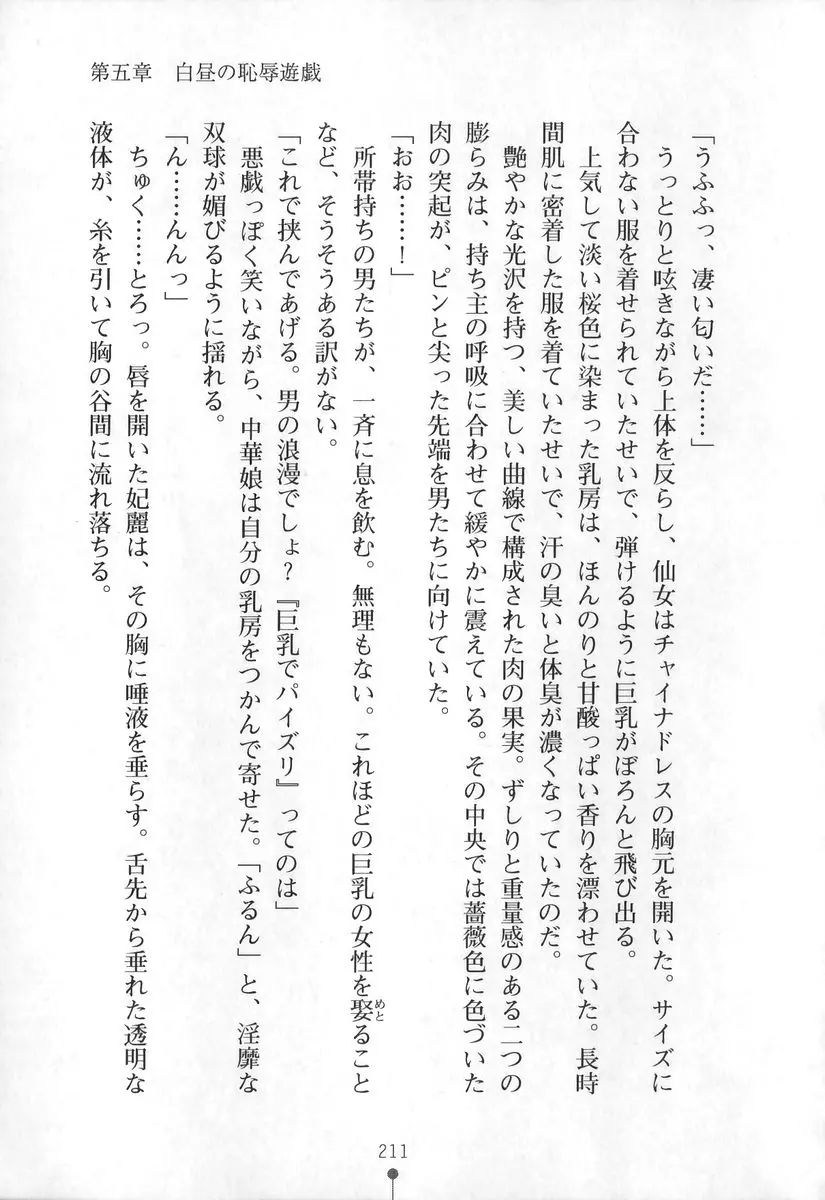 第五章　白昼の恥辱遊戯
「うふふっ、凄い匂いだ……」
　うっとりと呟きながら上体を反らし、仙女はチャイナドレスの胸元を開いた。サイズに
合わない服を着せられていたせいで、弾けるように巨乳がぼろんと飛び出る。
　上気して淡い桜色に染まった乳房は、ほんのりと甘酸っぱい香りを漂わせていた。長時
間肌に密着した服を着ていたせいで、汗の臭いと体臭が濃くなっていたのだ。
　艶やかな光沢を持つ、美しい曲線で構成された肉の果実。ずしりと重量感のある二つの
膨らみは、持ち主の呼吸に合わせて緩やかに震えている。その中央では薔薇色に色づいた
肉の突起が、ピンと尖った先端を男たちに向けていた。
「おお……！」
　所帯持ちの男たちが、一斉に息を飲む。無理もない。これほどの巨乳の女性を娶ること
めと
など、そうそうある訳がない。
「これで挟んであげる。男の浪漫でしょ？『巨乳でパイズリ』ってのは」
　悪戯っぽく笑いながら、中華娘は自分の乳房をつかんで寄せた。「ふるん」と、淫靡な
双球が媚びるように揺れる。
「ん……んんっ」
　ちゅく……とろっ。唇を開いた妃麗は、その胸に唾液を垂らす。舌先から垂れた透明な
液体が、糸を引いて胸の谷間に流れ落ちる。
211